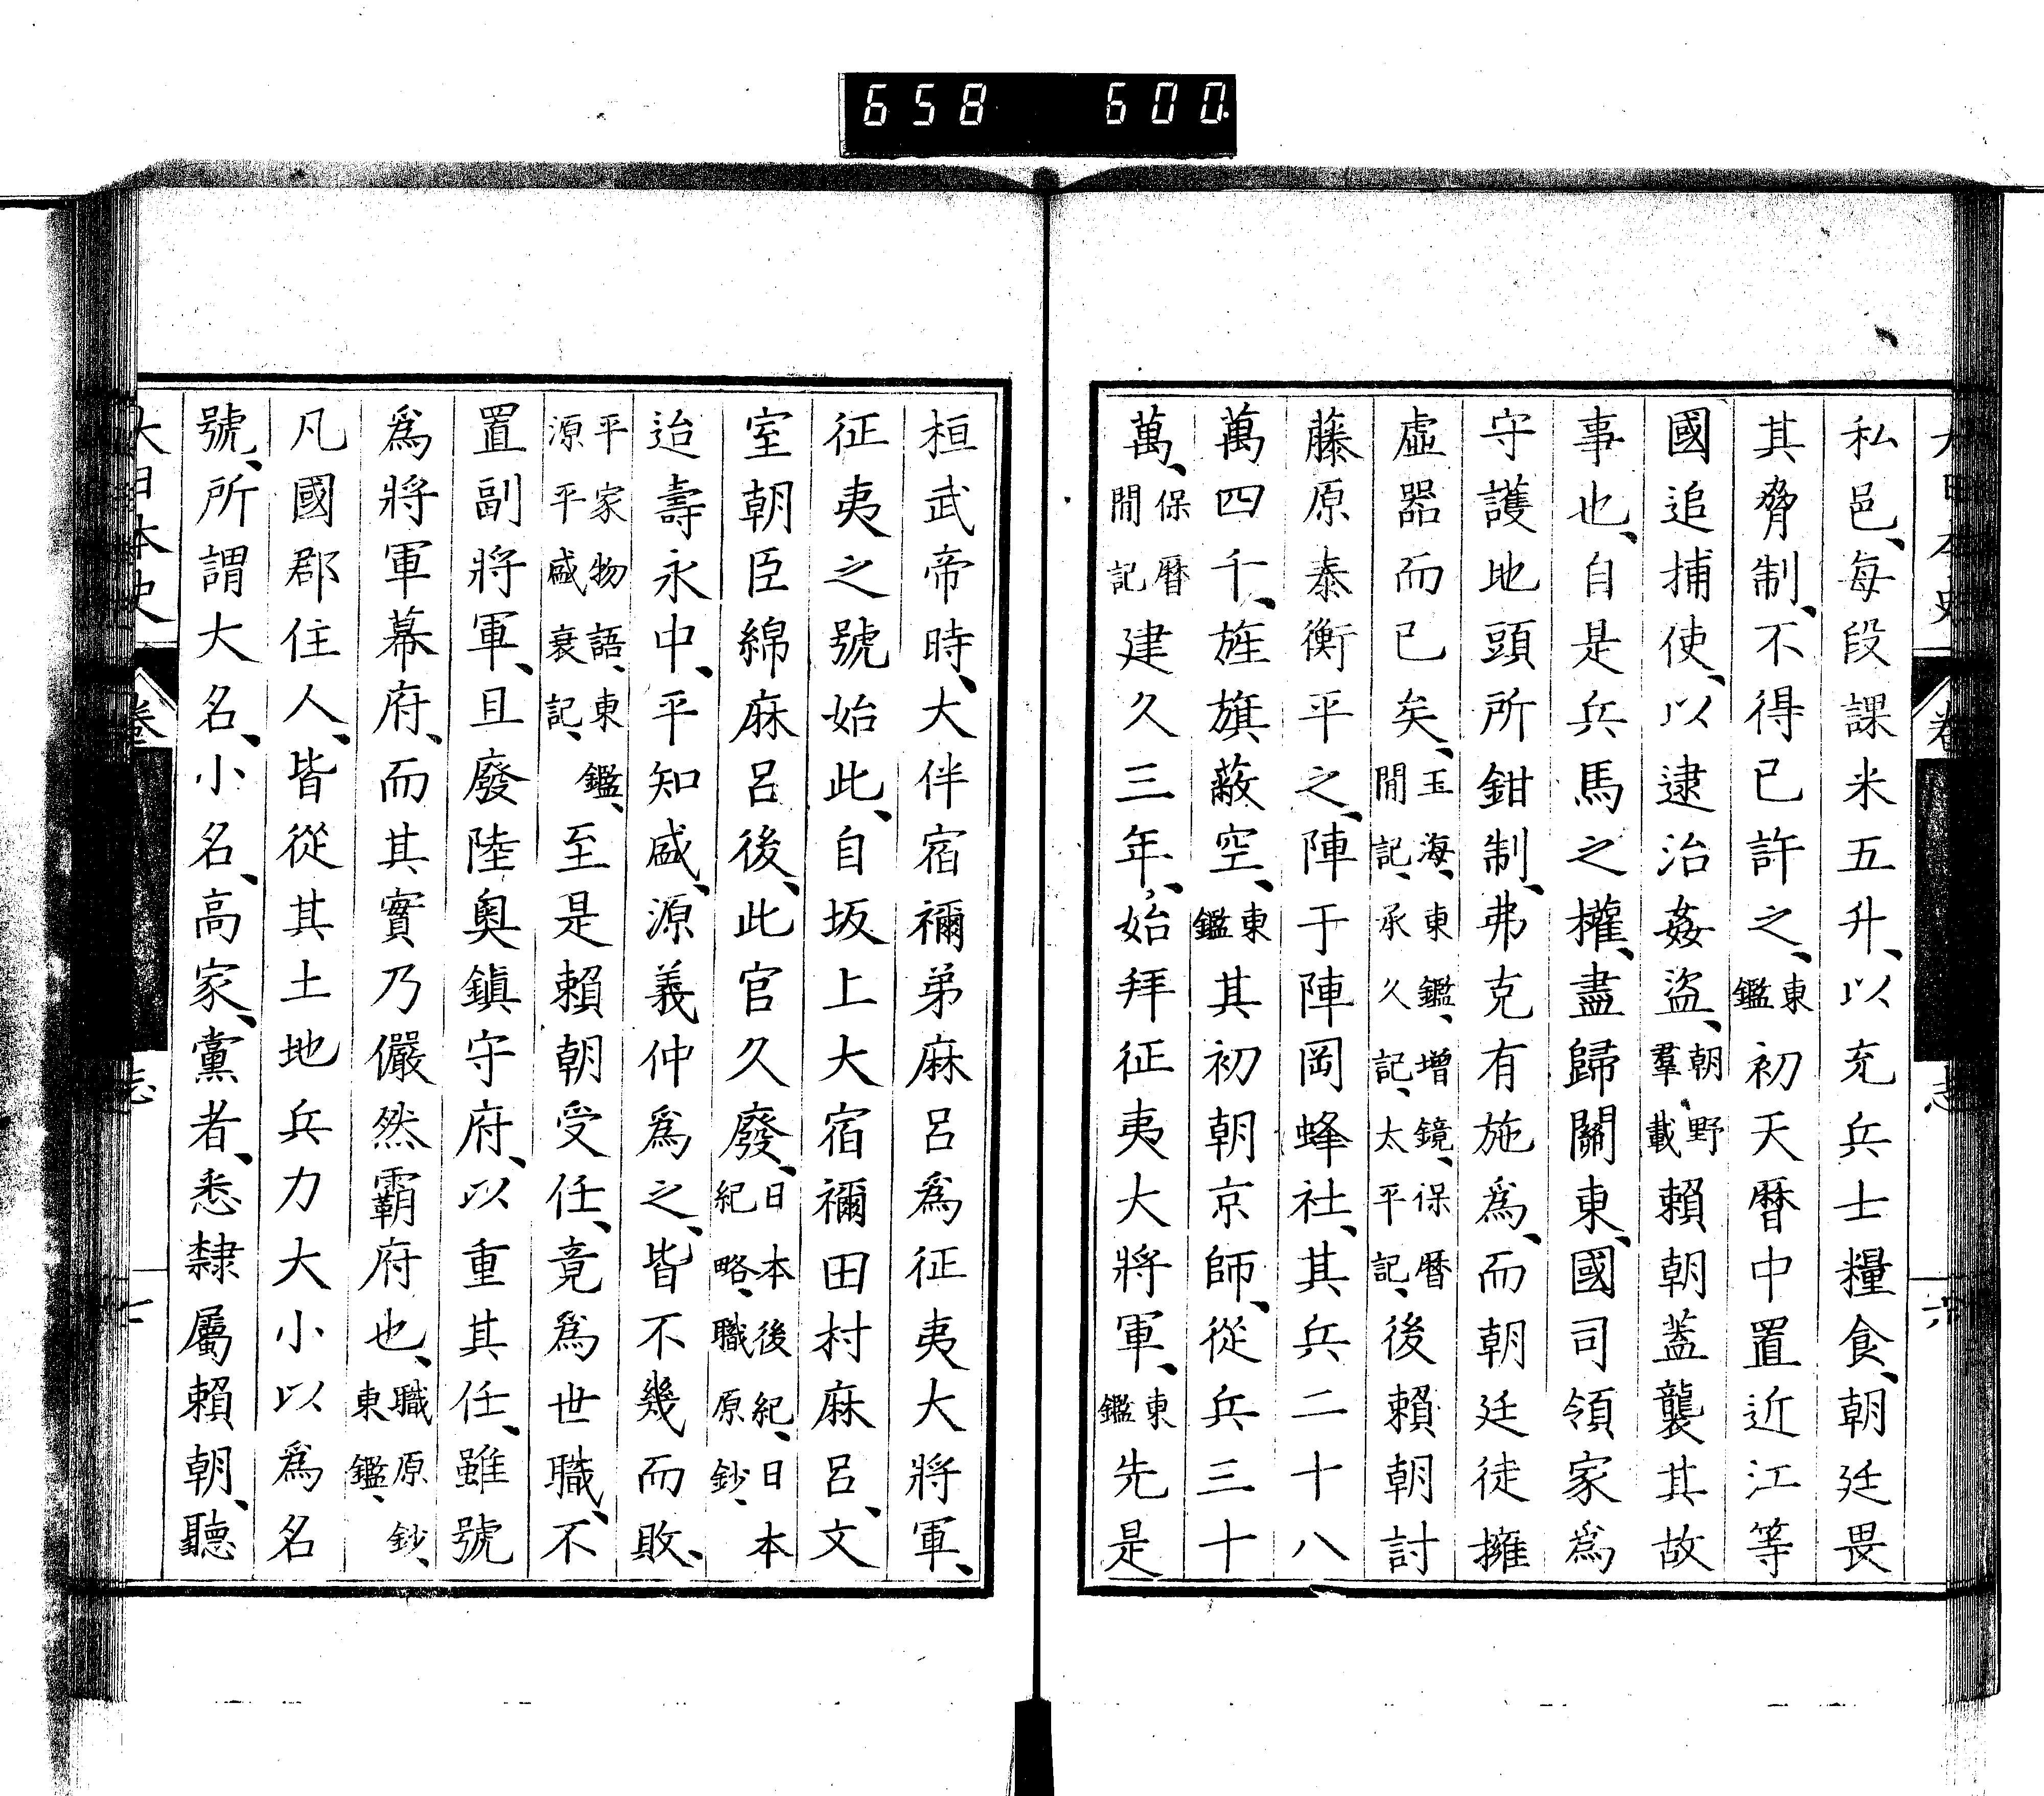 658 600
大日本史 卷 志 六
私邑、每段課米五升、以充兵士糧食、朝廷畏
其脅制、不得已許之、東鑑初天曆中置近江等
國追捕使、以逮治姦盜、朝野羣載賴朝蓋襲其故
事也、自是兵馬之權、盡歸關東、國司領家爲
守護地頭所鉗制、弗克有施爲、而朝廷徒擁
虛器而已矣、玉海、東鑑、增鏡、保曆間記、承久記、太平記、後賴朝討
藤原泰衡平之、陣于陣岡蜂社、其兵二十八
萬四千、旌旗蔽空、東鑑其初朝京師、從兵三十
萬、保曆間記建久三年、始拜征夷大將軍、東鑑先是
桓武帝時、大伴宿禰弟麻呂爲征夷大將軍、
征夷之號始此、自坂上大宿禰田村麻呂、文
室朝臣綿麻呂後、此官久廢、日本後紀、日本紀略、職原鈔、
迨壽永中、平知盛、源義仲爲之、皆不幾而敗、
平家物語、東鑑、源平盛衰記、至是賴朝受任、竟爲世職、不
置副將軍、且廢陸奧鎮守府、以重其任、雖號
爲將軍幕府、而其實乃儼然霸府也、職原鈔、東鑑、
凡國郡住人、皆從其土地兵力大小以爲名
號、所謂大名、小名、高家、黨者、悉隸屬賴朝、聽
大日本史 卷 志 七